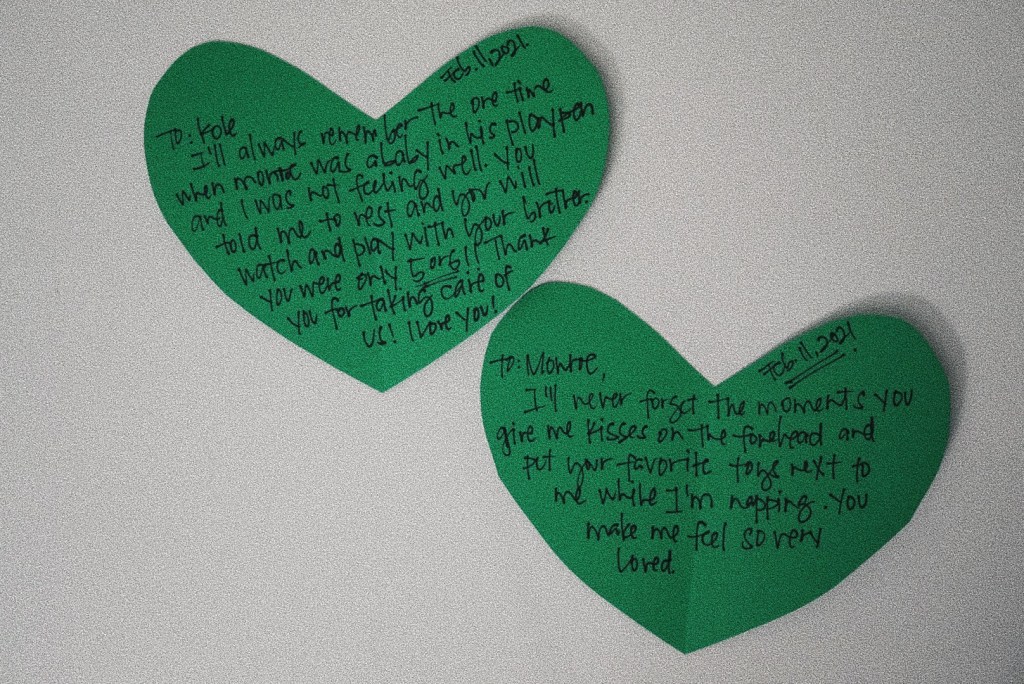 Feb. 11, 2021.
To: Kole
I'll always remember the one time
when monroe was a baby in his playpen
and I was not feeling well. You
told me to rest and you will
watch and play with your brother.
you were only 5 or 6!! Thank
you for taking care of
us! I love you!
Feb. 11, 2021.
To: Monroe,
I'll never forget the moments you
give me kisses on the forehead and
put your favorite toys next to
me while I'm napping. You
make me feel so very
loved.